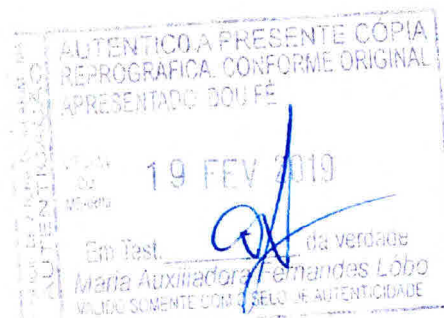 AUTENTICO A PRESENTE CÓPIA
REPROGRAFICA. CONFORME ORIGINAL
APRESENTADO DOU FÉ
19 FEV 2019
Em Test. da verdade
Maria Auxiliadora Fernandes Lôbo
VALIDO SOMENTE COM O SELO DE AUTENTICIDADE